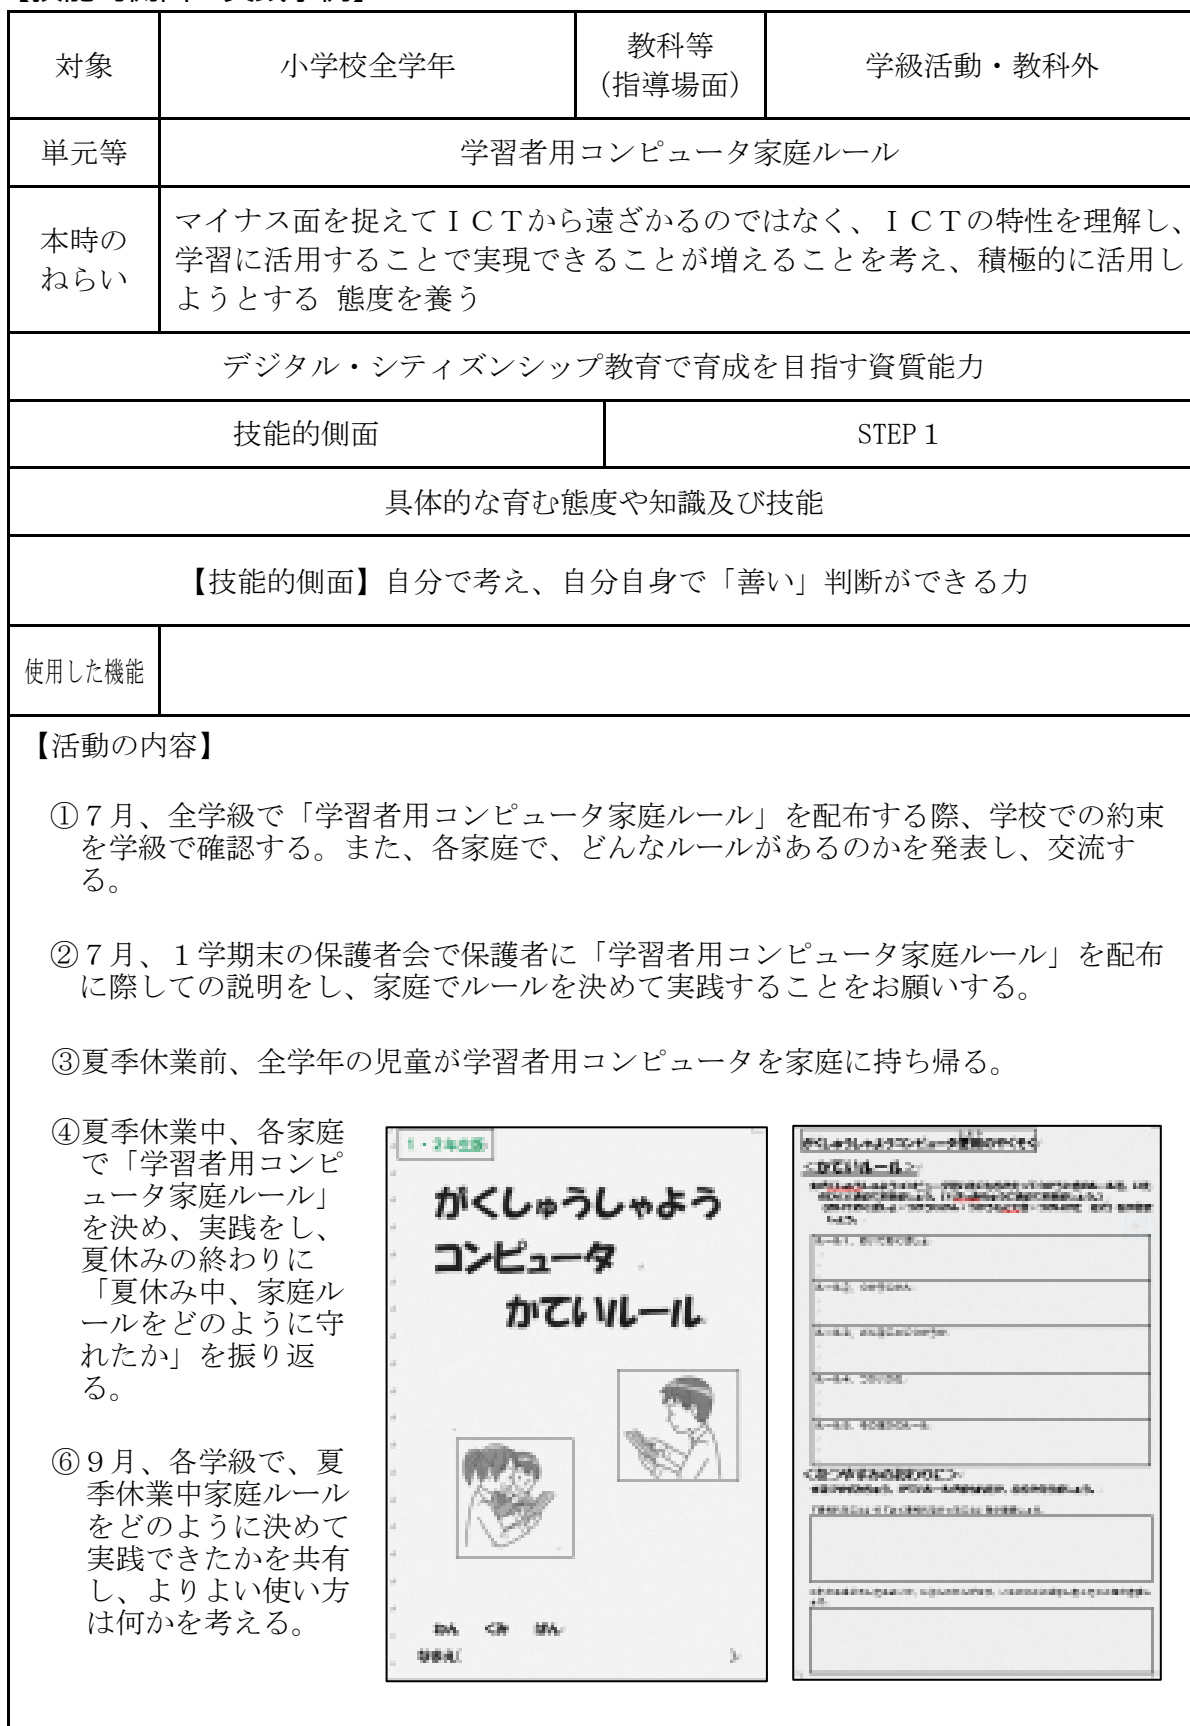 対象
小学校全学年
教科等
(指導場面)
学級活動・教科外
単元等
学習者用コンピュータ家庭ルール
本時の
ねらい
マイナス面を捉えてＩＣＴから遠ざかるのではなく、ＩＣＴの特性を理解し、
学習に活用することで実現できることが増えることを考え、積極的に活用し
ようとする 態度を養う
デジタル・シティズンシップ教育で育成を目指す資質能力
技能的側面
STEP１
具体的な育む態度や知識及び技能
【技能的側面】自分で考え、自分自身で「善い」判断ができる力
使用した機能
【活動の内容】
①７月、全学級で「学習者用コンピュータ家庭ルール」を配布する際、学校での約束
を学級で確認する。また、各家庭で、どんなルールがあるのかを発表し、交流す
る。
②７月、１学期末の保護者会で保護者に「学習者用コンピュータ家庭ルール」を配布
に際しての説明をし、家庭でルールを決めて実践することをお願いする。
③夏季休業前、全学年の児童が学習者用コンピュータを家庭に持ち帰る。
④夏季休業中、各家庭
で「学習者用コンピ
ュータ家庭ルール」
を決め、実践をし、
夏休みの終わりに
「夏休み中、家庭ル
ールをどのように守
れたか」を振り返
る。
⑥９月、各学級で、夏
季休業中家庭ルール
をどのように決めて
実践できたかを共有
し、よりよい使い方
は何かを考える。
1・2年生版
がくしゅうしゃよう
コンピュータ
かていルール
ねん くみ ばん
なまえ( )
＜かていルール＞